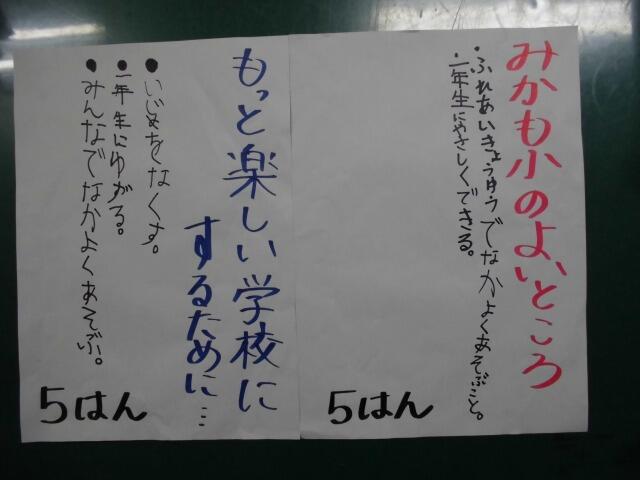 みかも小のよいところ
・ふれあいきょうゆうでなかよくあそぶこと。
・一年生にやさしくできる。
5はん
もっと楽しい学校に
するために…
●いじめをなくす。
●一年生にゆずる。
●みんなでなかよくあそぶ。
5はん